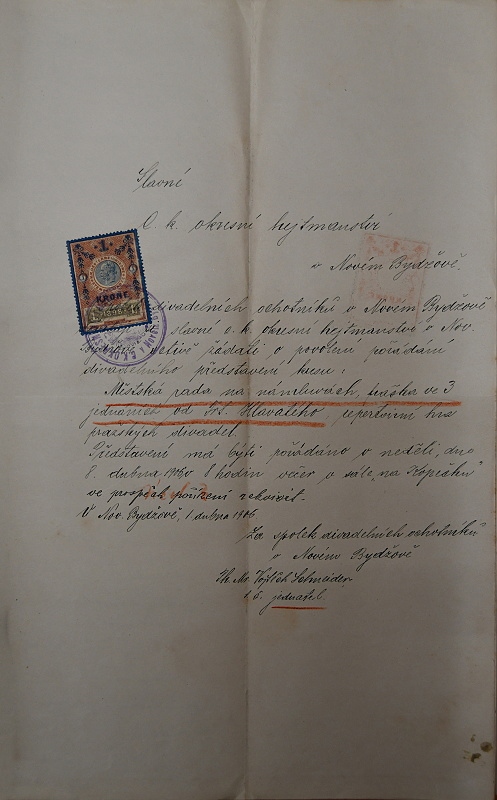 Slavné
c. k. okresní hejtmanství
v Novém Bydžově.
1
KRONE
1898
divadelních ochotníků v Novém Bydžově
slavné c. k. okresní hejtmanství v Nov.
Bydžově žádati o povolení pořádání
divadelního představení kusu:
Městská rada na námluvách, fraška ve 3
jednáních od Fr. Hlavatého, repertoirní kus
pražských divadel.
Představení má býti pořádáno v neděli, dne
8. dubna 1906 o 8 hodin večer v sále „na Kopečku"
ve prospěch pořízení rekvisit.
V Nov. Bydžově, 1 dubna 1906.
Za spolek divadelních ochotníků
v Novém Bydžově
Vojtěch Schneider
t. č. jednatel.